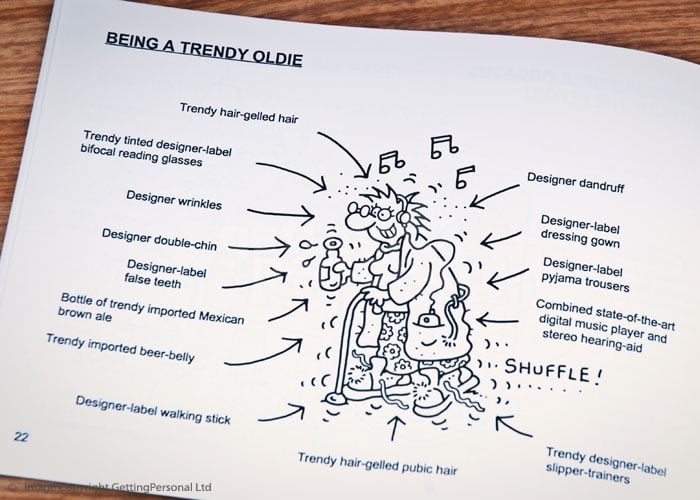 BEING A TRENDY OLDIE
Trendy hair-gelled hair
Trendy tinted designer-label
bifocal reading glasses
Designer wrinkles
Designer double-chin
Designer-label
false teeth
Bottle of trendy imported Mexican
brown ale
Trendy imported beer-belly
Designer-label walking stick
Trendy hair-gelled pubic hair
Designer dandruff
Designer-label
dressing gown
Designer-label
pyjama trousers
Combined state-of-the-art
digital music player and
stereo hearing-aid
SHUFFLE!
Trendy designer-label
slipper-trainers
22
© Image Copyright GettingPersonal Ltd